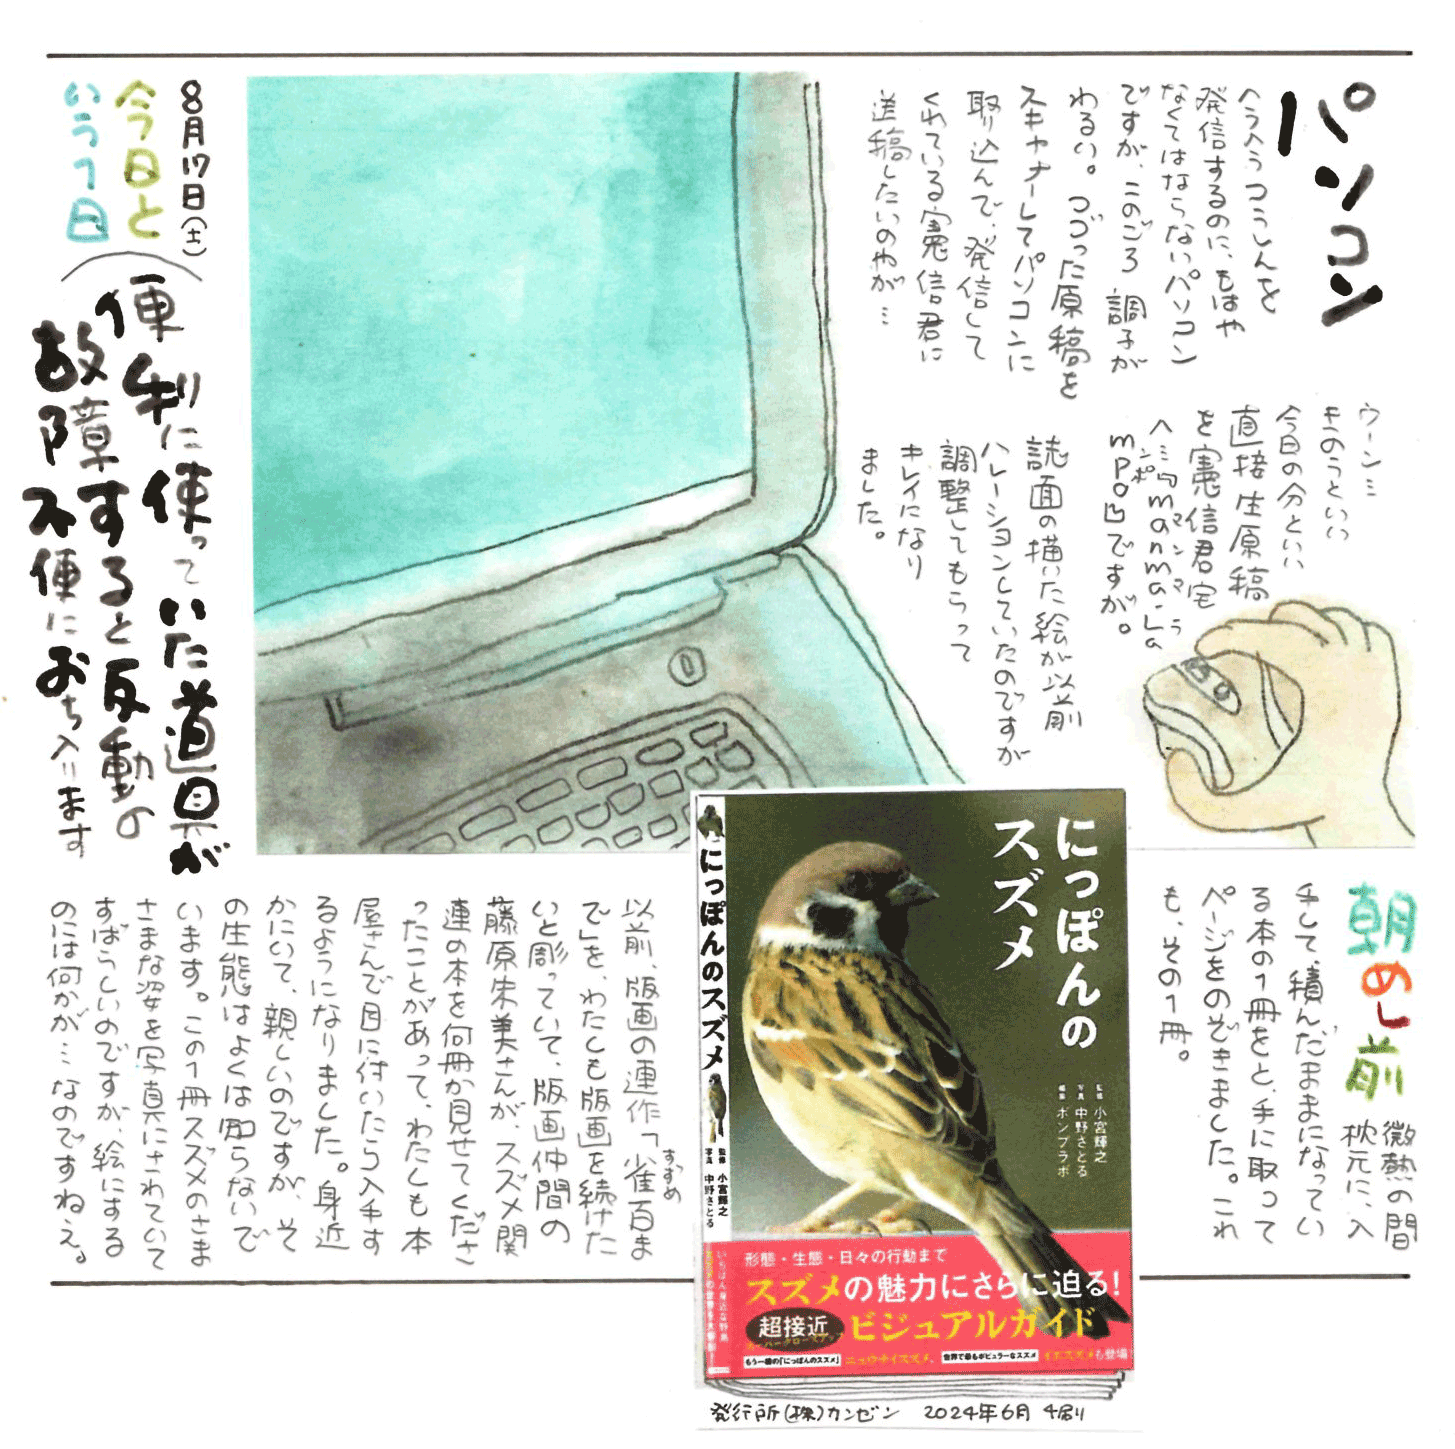 パソコン
へうへうつうしんを
発信するのに、もはや
なくてはならないパソコン
ですが、このごろ 調子が
わるい。つづった原稿を
スキャナーしてパソコンに
取り込んで、発信して
くれている憲信君に
送稿したいのやが…
ウーンミ
きのうといい
今日の分といい
直接生原稿
を憲信君宅
へミ『manma・La
mPo』ですが。
マンマ・ラ
ンポ
誌面の描いた絵が以前
ハレーションしていたのですが
調整してもらって
キレイになり
ました。
8月17日(土)
今日と
いう1日
便利に使っていた道具が
故障すると反動の
不便におち入ります
朝めし前
微熱の間
枕元に、入
手して、積んだままになってい
る本の1冊をと、手に取って
ページをのぞきました。これ
も、その1冊。
にっぽんの
スズメ
監修 小宮輝之
写真 中野さとる
編集 ポンプラボ
にっぽんのスズメ
監修 小宮輝之
写真 中野さとる
形態・生態・日々の行動まで
スズメの魅力にさらに迫る!
超接近
スーパークローズアップ
ビジュアルガイド
もう一種の「にっぽんのスズメ」
ニュウナイスズメ、
世界で最もポピュラーなスズメ
イエスズメも登場
いちばん身近な野鳥
発行所(株)カンゼン 2024年6月 4刷り
以前、版画の連作「雀百ま
すずめ
で」を、わたしも版画を続けた
いと彫っていて、版画仲間の
藤原朱美さんが、スズメ関
連の本を何冊か見せてくださ
ったことがあって、わたしも本
屋さんで目に付いたら入手す
るようになりました。身近
かにいて、親しいのですが、そ
の生態はよくは知らないで
います。この1冊スズメのさま
さまな姿を写真にされていて
すばらしいのですが、絵にする
のには何かが…なのですねえ。